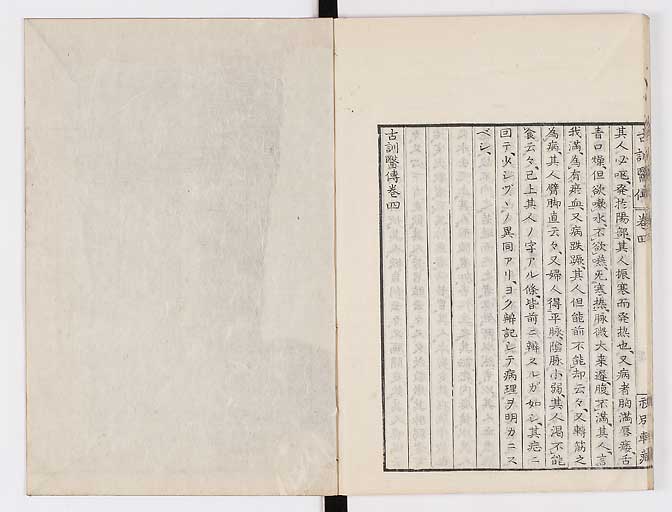 古訓醫傳 卷四
其人必嘔發於陽部其人振寒而發熱也、又病者胸滿唇痿舌
青口燥、但欲嗽水、不欲嚥、无寒熱、脉微大来遲、腹不滿、其人言
我滿、為有瘀血、又病趺蹶、其人但能前不能却云々、又轉筋之
為病其人臂脚直云々、又婦人得平脉、陰脉小弱、其人渴、不能
食云々、已上其人ノ字アル條皆前ニ辨スルガ如シ、其处ニ
回テ、少シヅヽノ異同アリ、ヨク辨記シテ病理ヲ明カニス
ベシ、
古訓醫傳卷四